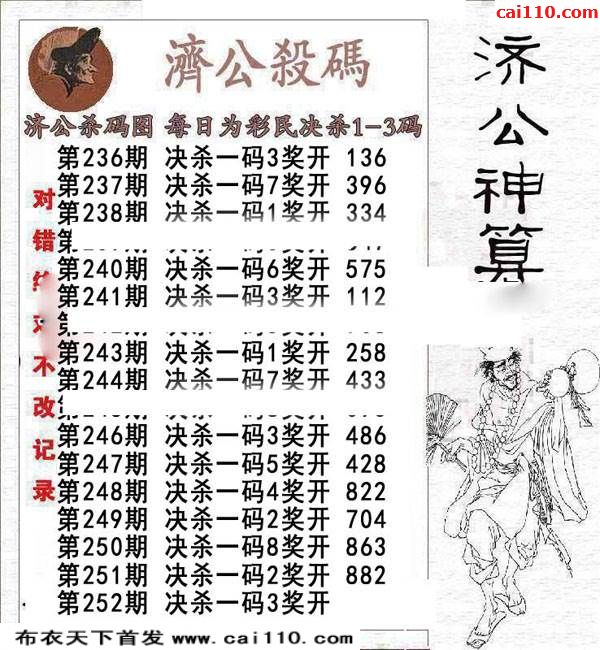 cai110.com
濟公殺碼
济公神算
济公杀码图 每日为彩民决杀1-3码
第236期 决杀一码3奖开 136
第237期 决杀一码7奖开 396
第238期 决杀一码1奖开 334
第240期 决杀一码6奖开 575
第241期 决杀一码3奖开 112
第243期 决杀一码1奖开 258
第244期 决杀一码7奖开 433
第246期 决杀一码3奖开 486
第247期 决杀一码5奖开 428
第248期 决杀一码4奖开 822
第249期 决杀一码2奖开 704
第250期 决杀一码8奖开 863
第251期 决杀一码2奖开 882
第252期 决杀一码3奖开
对错 不改记录
布衣天下首发 www.cai110.com